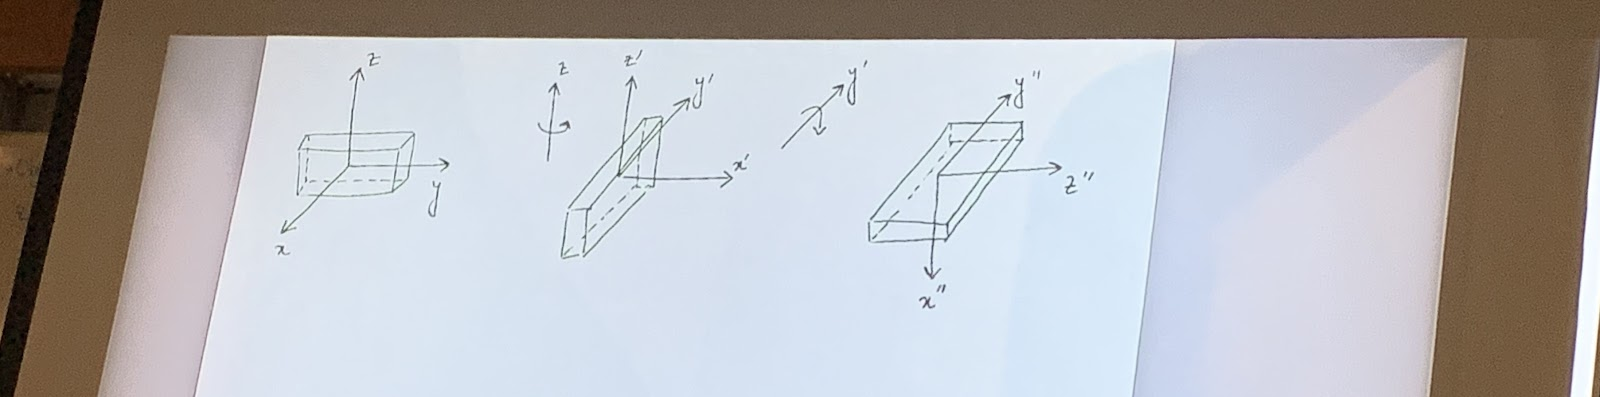 z
y
x
z
z'
y'
x'
y'
y"
z"
x"